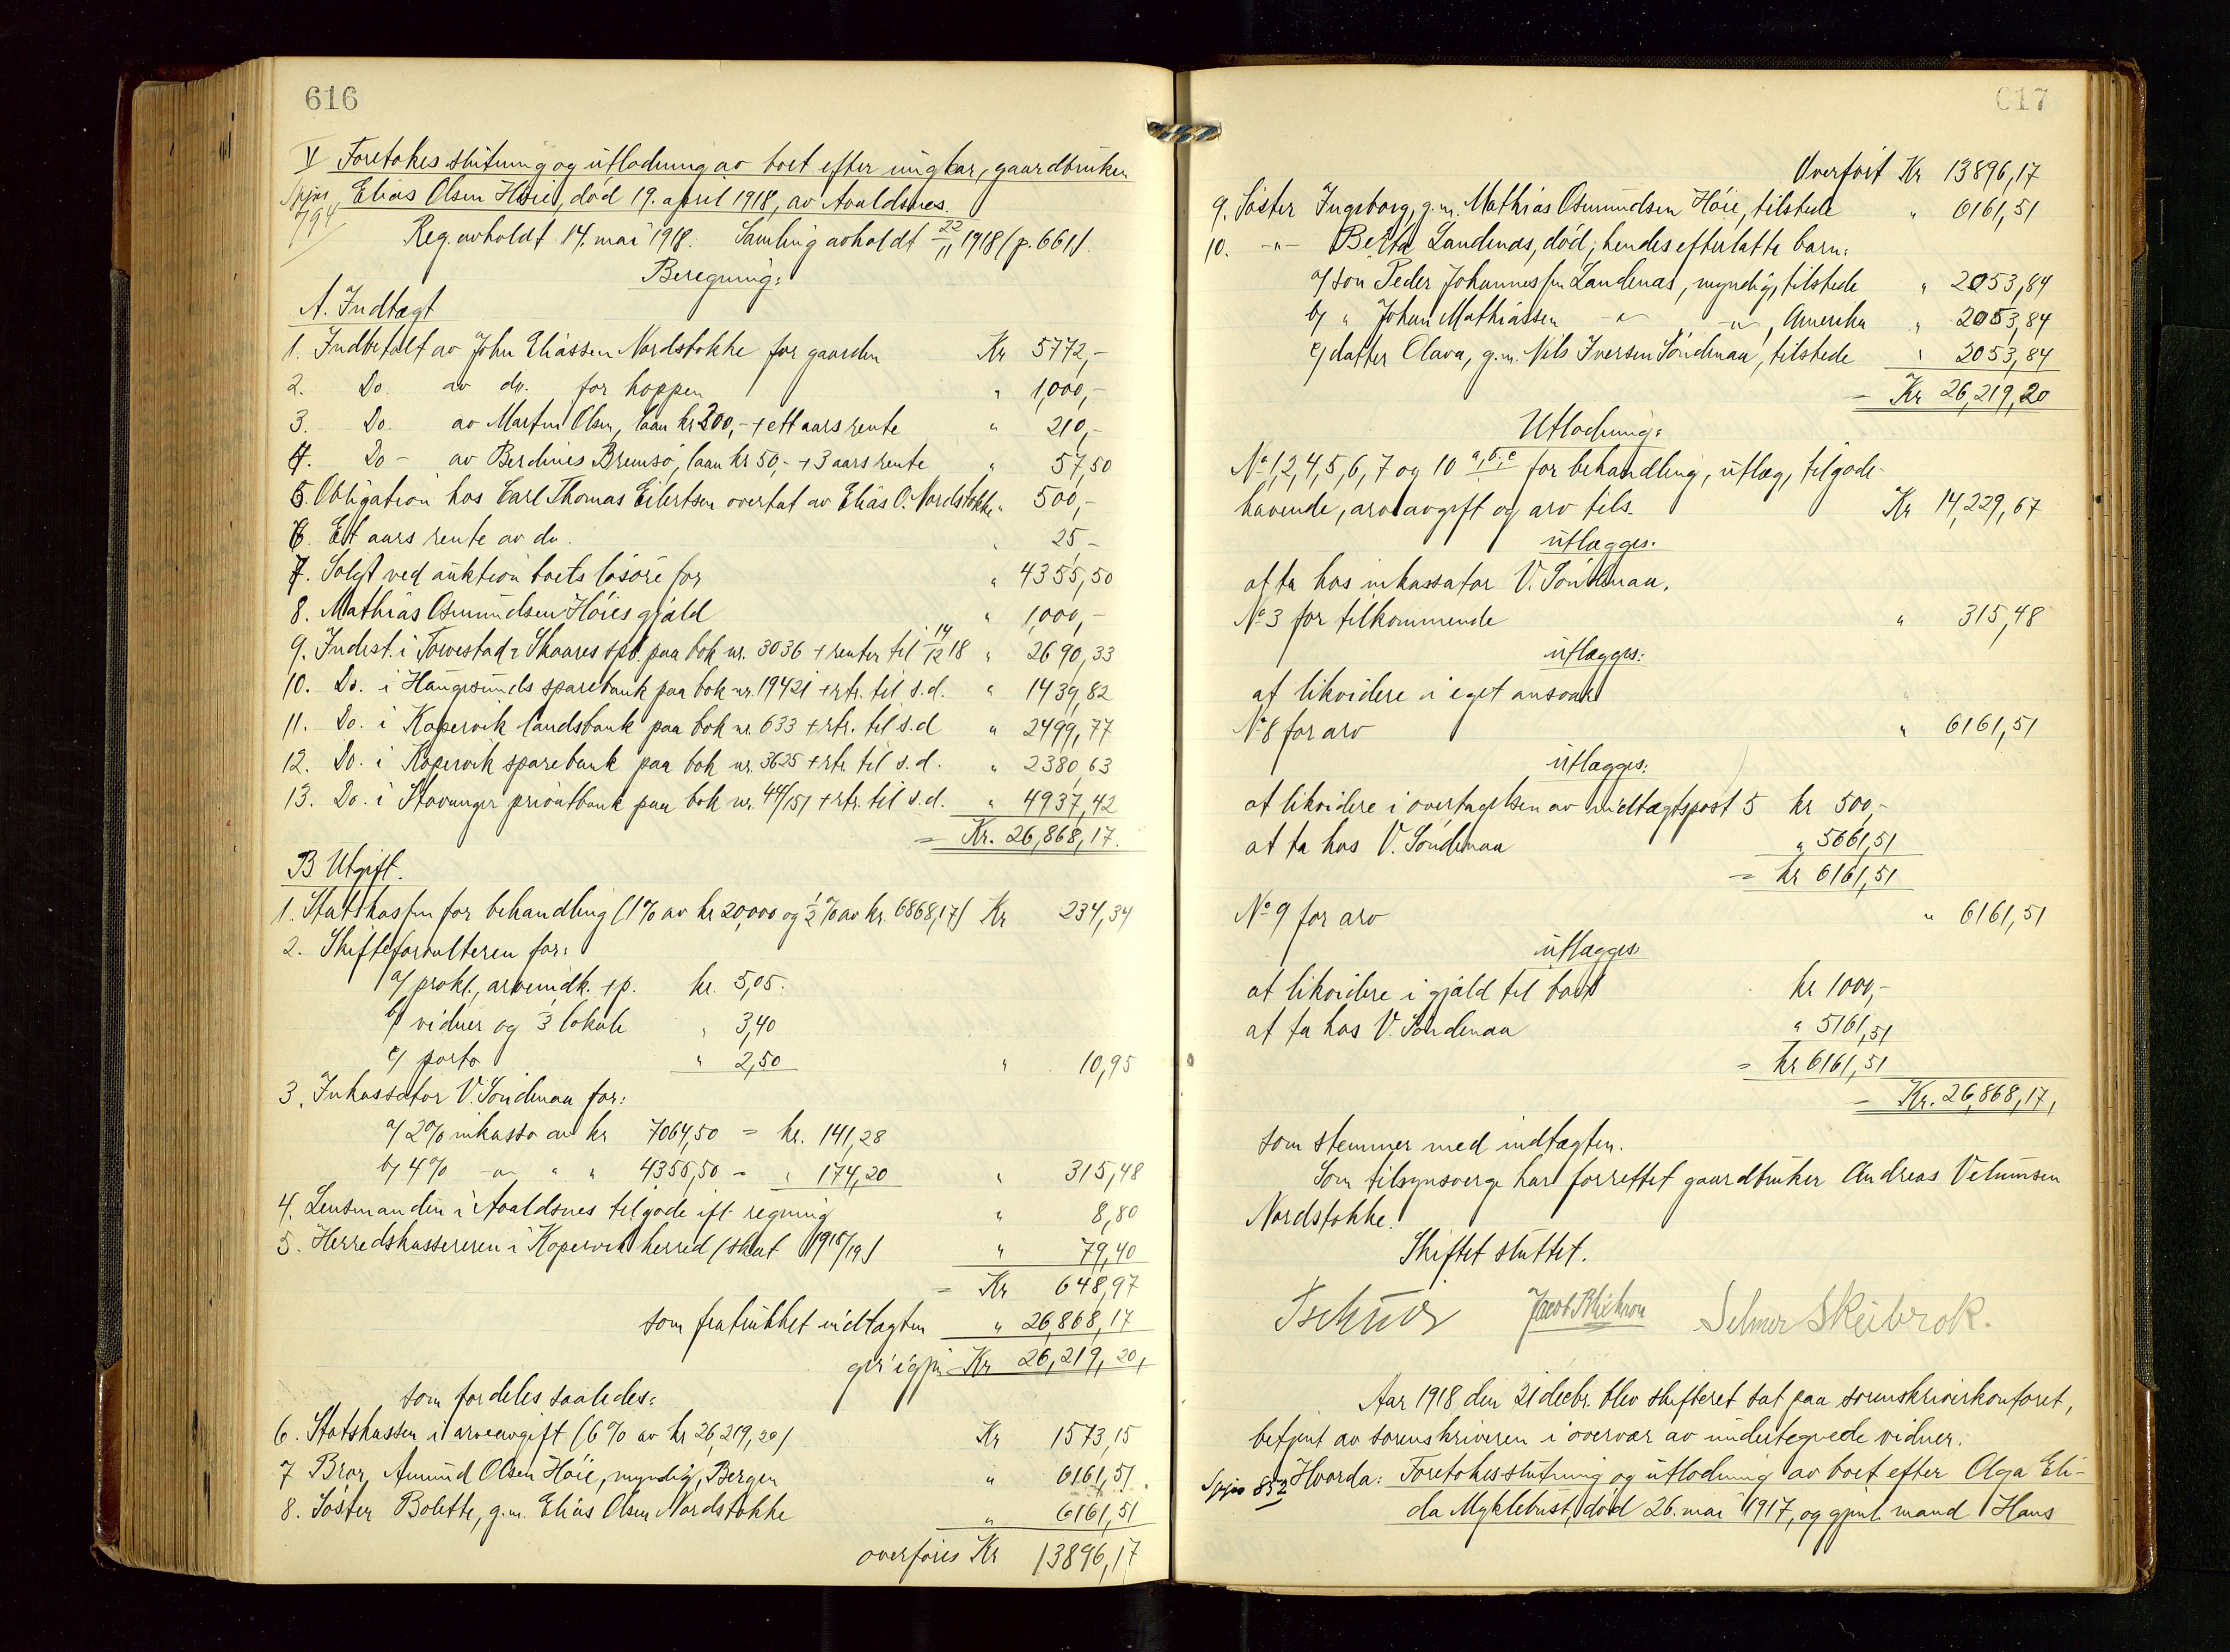 616
V Foretokes slutning og utlodning av boet efter ungkar, gaardbruker
Spjns 794
Elias Olsen Høie, død 19. april 1918, av Avaldsnes.
Reg. avholdt 14. mai 1918. Samling avholdt 22/11 1918 (p. 661).
Beregning:
A. Indtægt
1. Indbetalt av John Eliassen Nordstokke for gaarden Kr 5772,-
2. Do. av do. for hoppen " 1,000,-
3. Do. av Martin Olsen, laan kr 200,- + ett aars rente " 210,-
4. Do - av Berdines Bremsø, laan kr 50,- + 3 aars rente " 57,50
5. Obligation hos Carl Thomas Eilertsen overtat av Elias O. Nordstokke " 500,-
6. Et aars rente av do. " 25,-
7. Solgt ved auktion boets løsøre for " 4355,50
8. Mathias Osmundsen Høies gjæld " 1,000,-
9. Indest. i Torvestad & Skaares spb. paa bok nr. 3036 + renter til 14/12 18 " 2690,33
10. Do. i Haugesunds sparebank paa bok nr. 19421 + rtr. til s.d. " 1439,82
11. Do. i Kopervik landsbank paa bok nr. 633 + rtr. til s.d " 2499,77
12. Do. i Kopervik sparebank paa bok nr. 3625 + rtr til s.d. " 2380,63
13. Do. i Stavanger privatbank paa bok nr. 44/151 + rtr. til s.d. " 4937,42
= Kr. 26,868,17.
B Utgift.
1. Statskassen for behandling (1% av kr 20,000 og ½ % av kr. 6868,17) Kr 234,34
2. Skifteforvalteren for:
a/ prokl., arveindk. + p. kr. 5,05.
b/ vidner og 3 lokale " 3,40
c/ porto " 2,50 " 10,95
3. Inkassator V. Søndenaa for:
a/ 2% inkasso av kr 7064,50 = kr. 141,28
b/ 4% -"- " " 4355,50 - " 174,20 " 315,48
4. Lensmanden i Avaldsnes tilgode ifl. regning " 8,80
5. Herredskassereren i Kopervik herred (skat 1918/19) " 79,40
= Kr 648,97
som fratrukket indtægten " 26,868,17
gir igjen Kr 26,219,20,
som fordeles saaledes:
6. Statskassen i arveavgift (6% av kr 26,219,20) Kr 1573,15
7 Bror, Amund Olsen Høie, myndig, Bergen " 6161,51.
8. Søster Bolette, g.m. Elias Olsen Nordstokke " 6161,51
overføres Kr 13896,17
617
Overført Kr 13896,17
9. Søster Ingeborg, g.m. Mathias Osmundsen Høie, tilstede " 6161,51
10. -"- Berta Landenes, død; hendes efterlatte barn:
a/ søn Peder Johannessen Landenes, myndig, tilstede " 2053,84
b/ " Johan Mathiassen -"- , -"- , Amerika " 2053,84
c/ datter Olava, g.m. Nils Iversen Søndenaa, tilstede " 2053,84
= Kr 26,219,20
Utlodning:
No 1, 2, 4, 5, 6, 7 og 10 a, b, c for behandling, utlæg, tilgode-
havende, arveavgift og arv tils. Kr 14,229,67
utlægges:
at ta hos inkassator V. Søndenaa.
No 3 for tilkommende " 315,48
utlægges:
at likvidere i eget ansvar
No 8 for arv " 6161,51
utlægges:
at likvidere i overtagelsen av indtægtspost 5 kr 500,-
at ta hos V. Søndenaa " 5661,51
= kr 6161,51
No 9 for arv " 6161,51
utlægges:
at likvidere i gjæld til boet kr 1000,-
at ta hos V. Søndenaa " 5161,51
= kr 6161,51
= Kr. 26,868,17,
som stemmer med indtægten.
Som tilsynsverge har forrettet gaardbruker Andreas Velumsen
Nordstokke.
Skiftet sluttet.
Tschudi Selmer Skeibrok.
Aar 1918 den 21 decbr. blev skifteret sat paa sorenskriverkontoret,
betjent av sorenskriveren i overvær av undertegnede vidner.
Spjns 852
Hvorda: Foretokes slutning og utlodning av boet efter Olga Eli-
da Myklebust, død 26. mai 1917, og gjenl. mand Hans